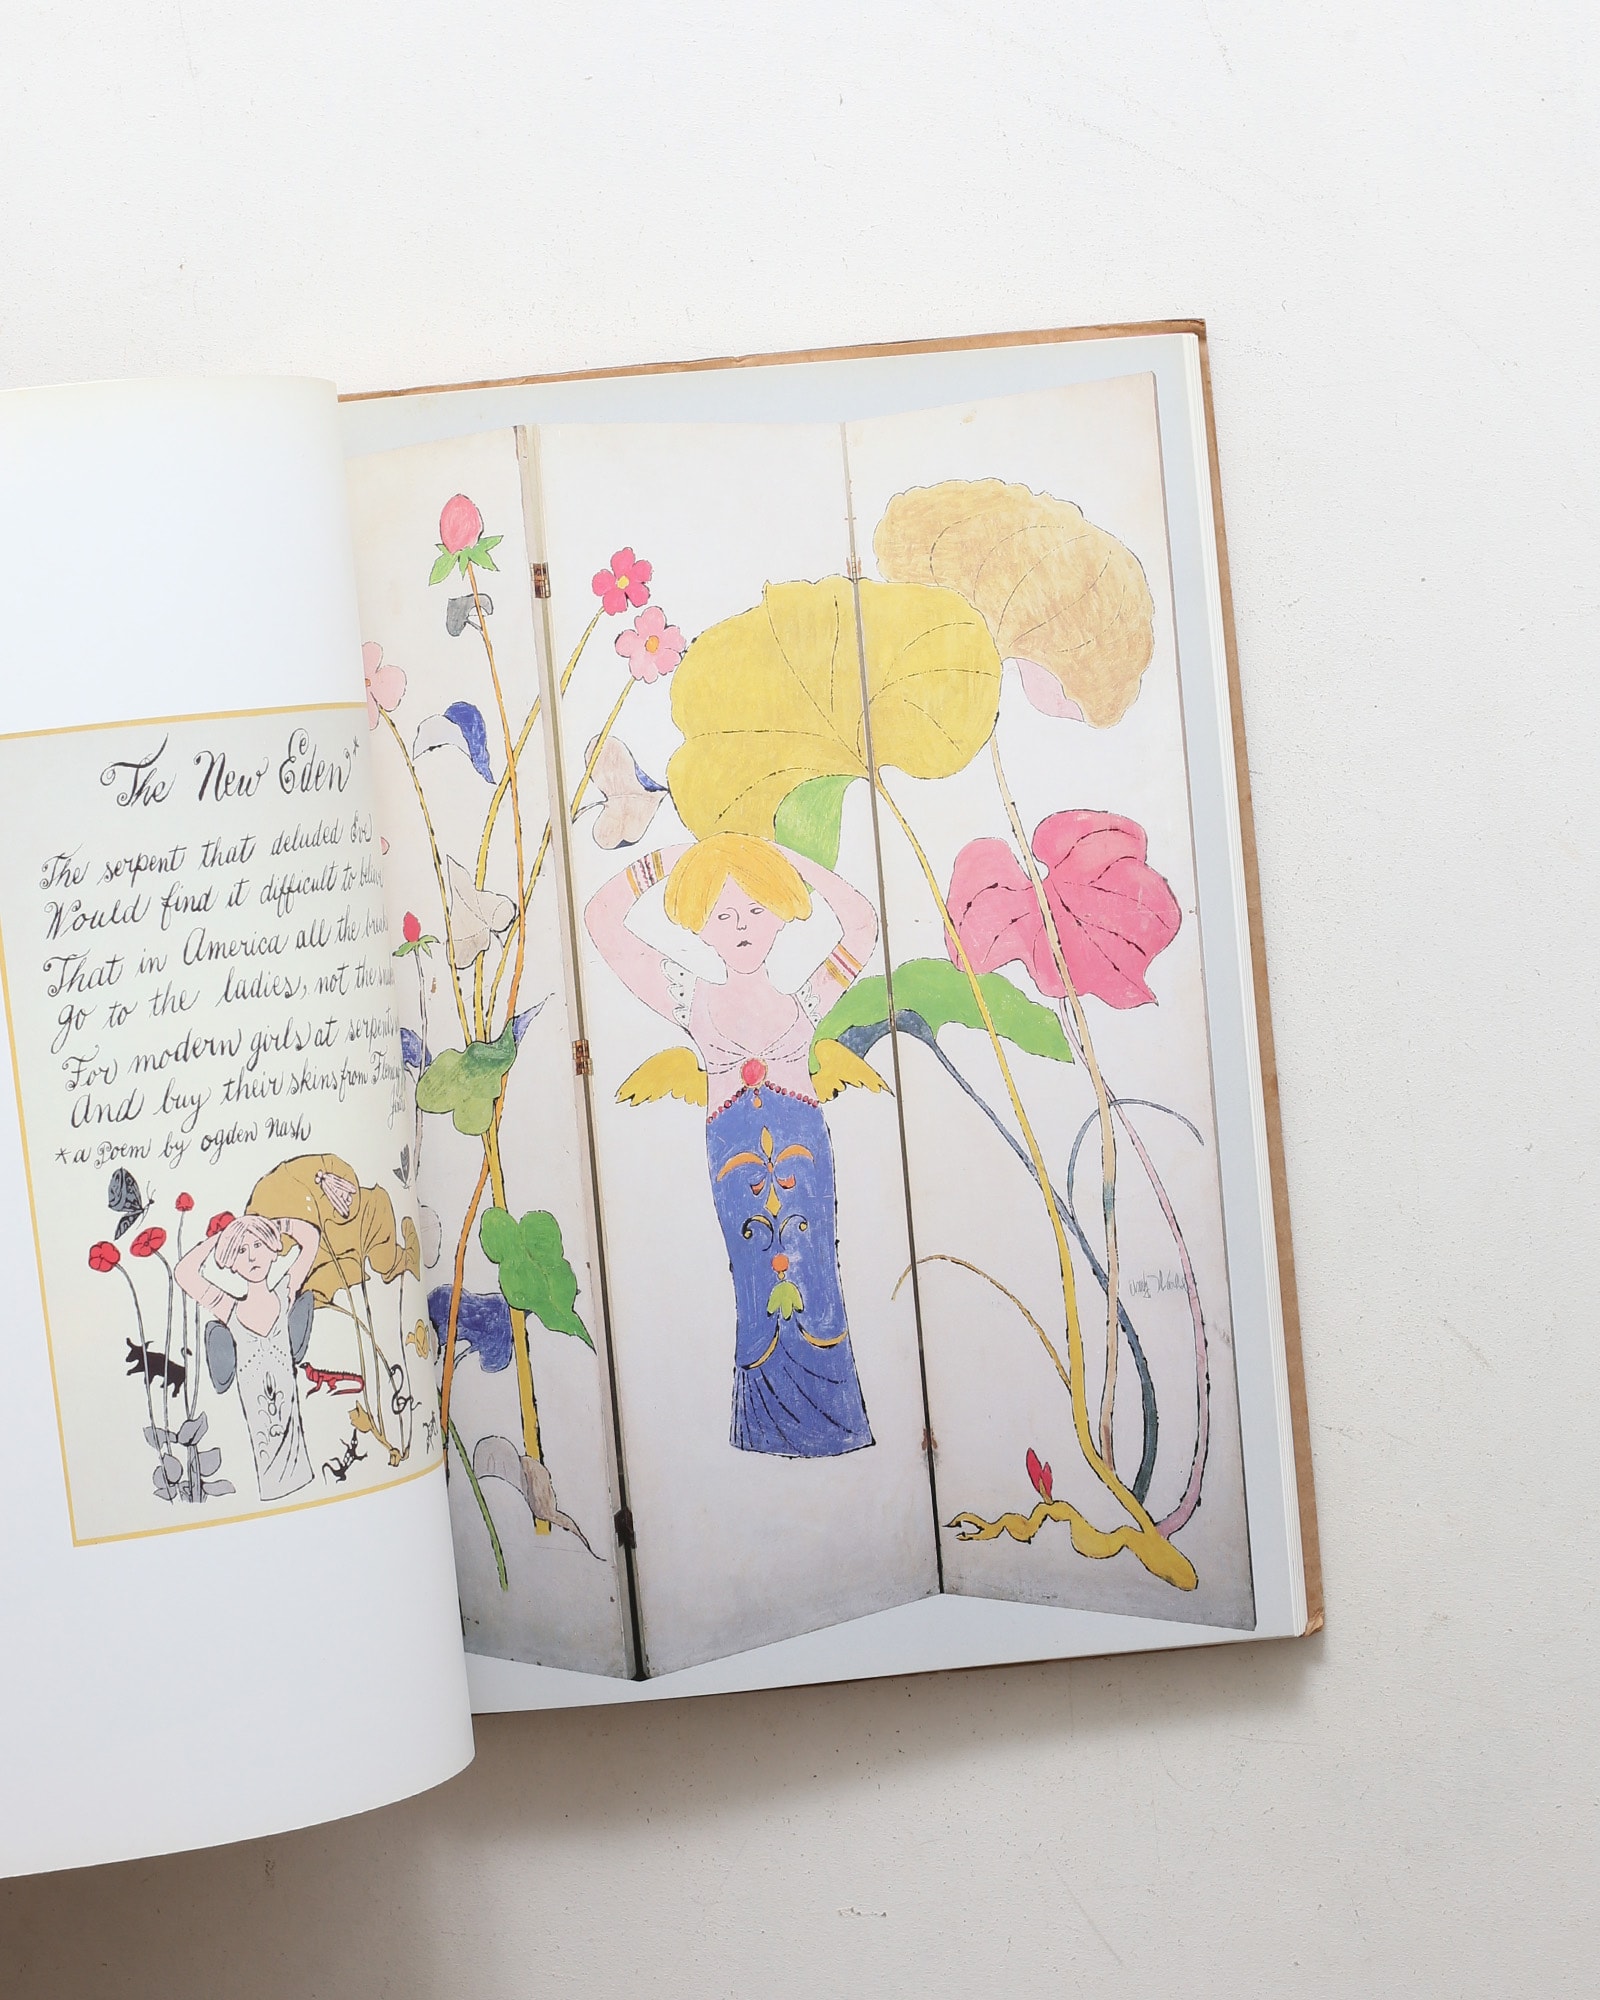 The New Eden*
The serpent that deluded Eve
Would find it difficult to
That in America all the
go to the ladies, not the
For modern girls at
And buy their skins from
*a Poem by Ogden Nash